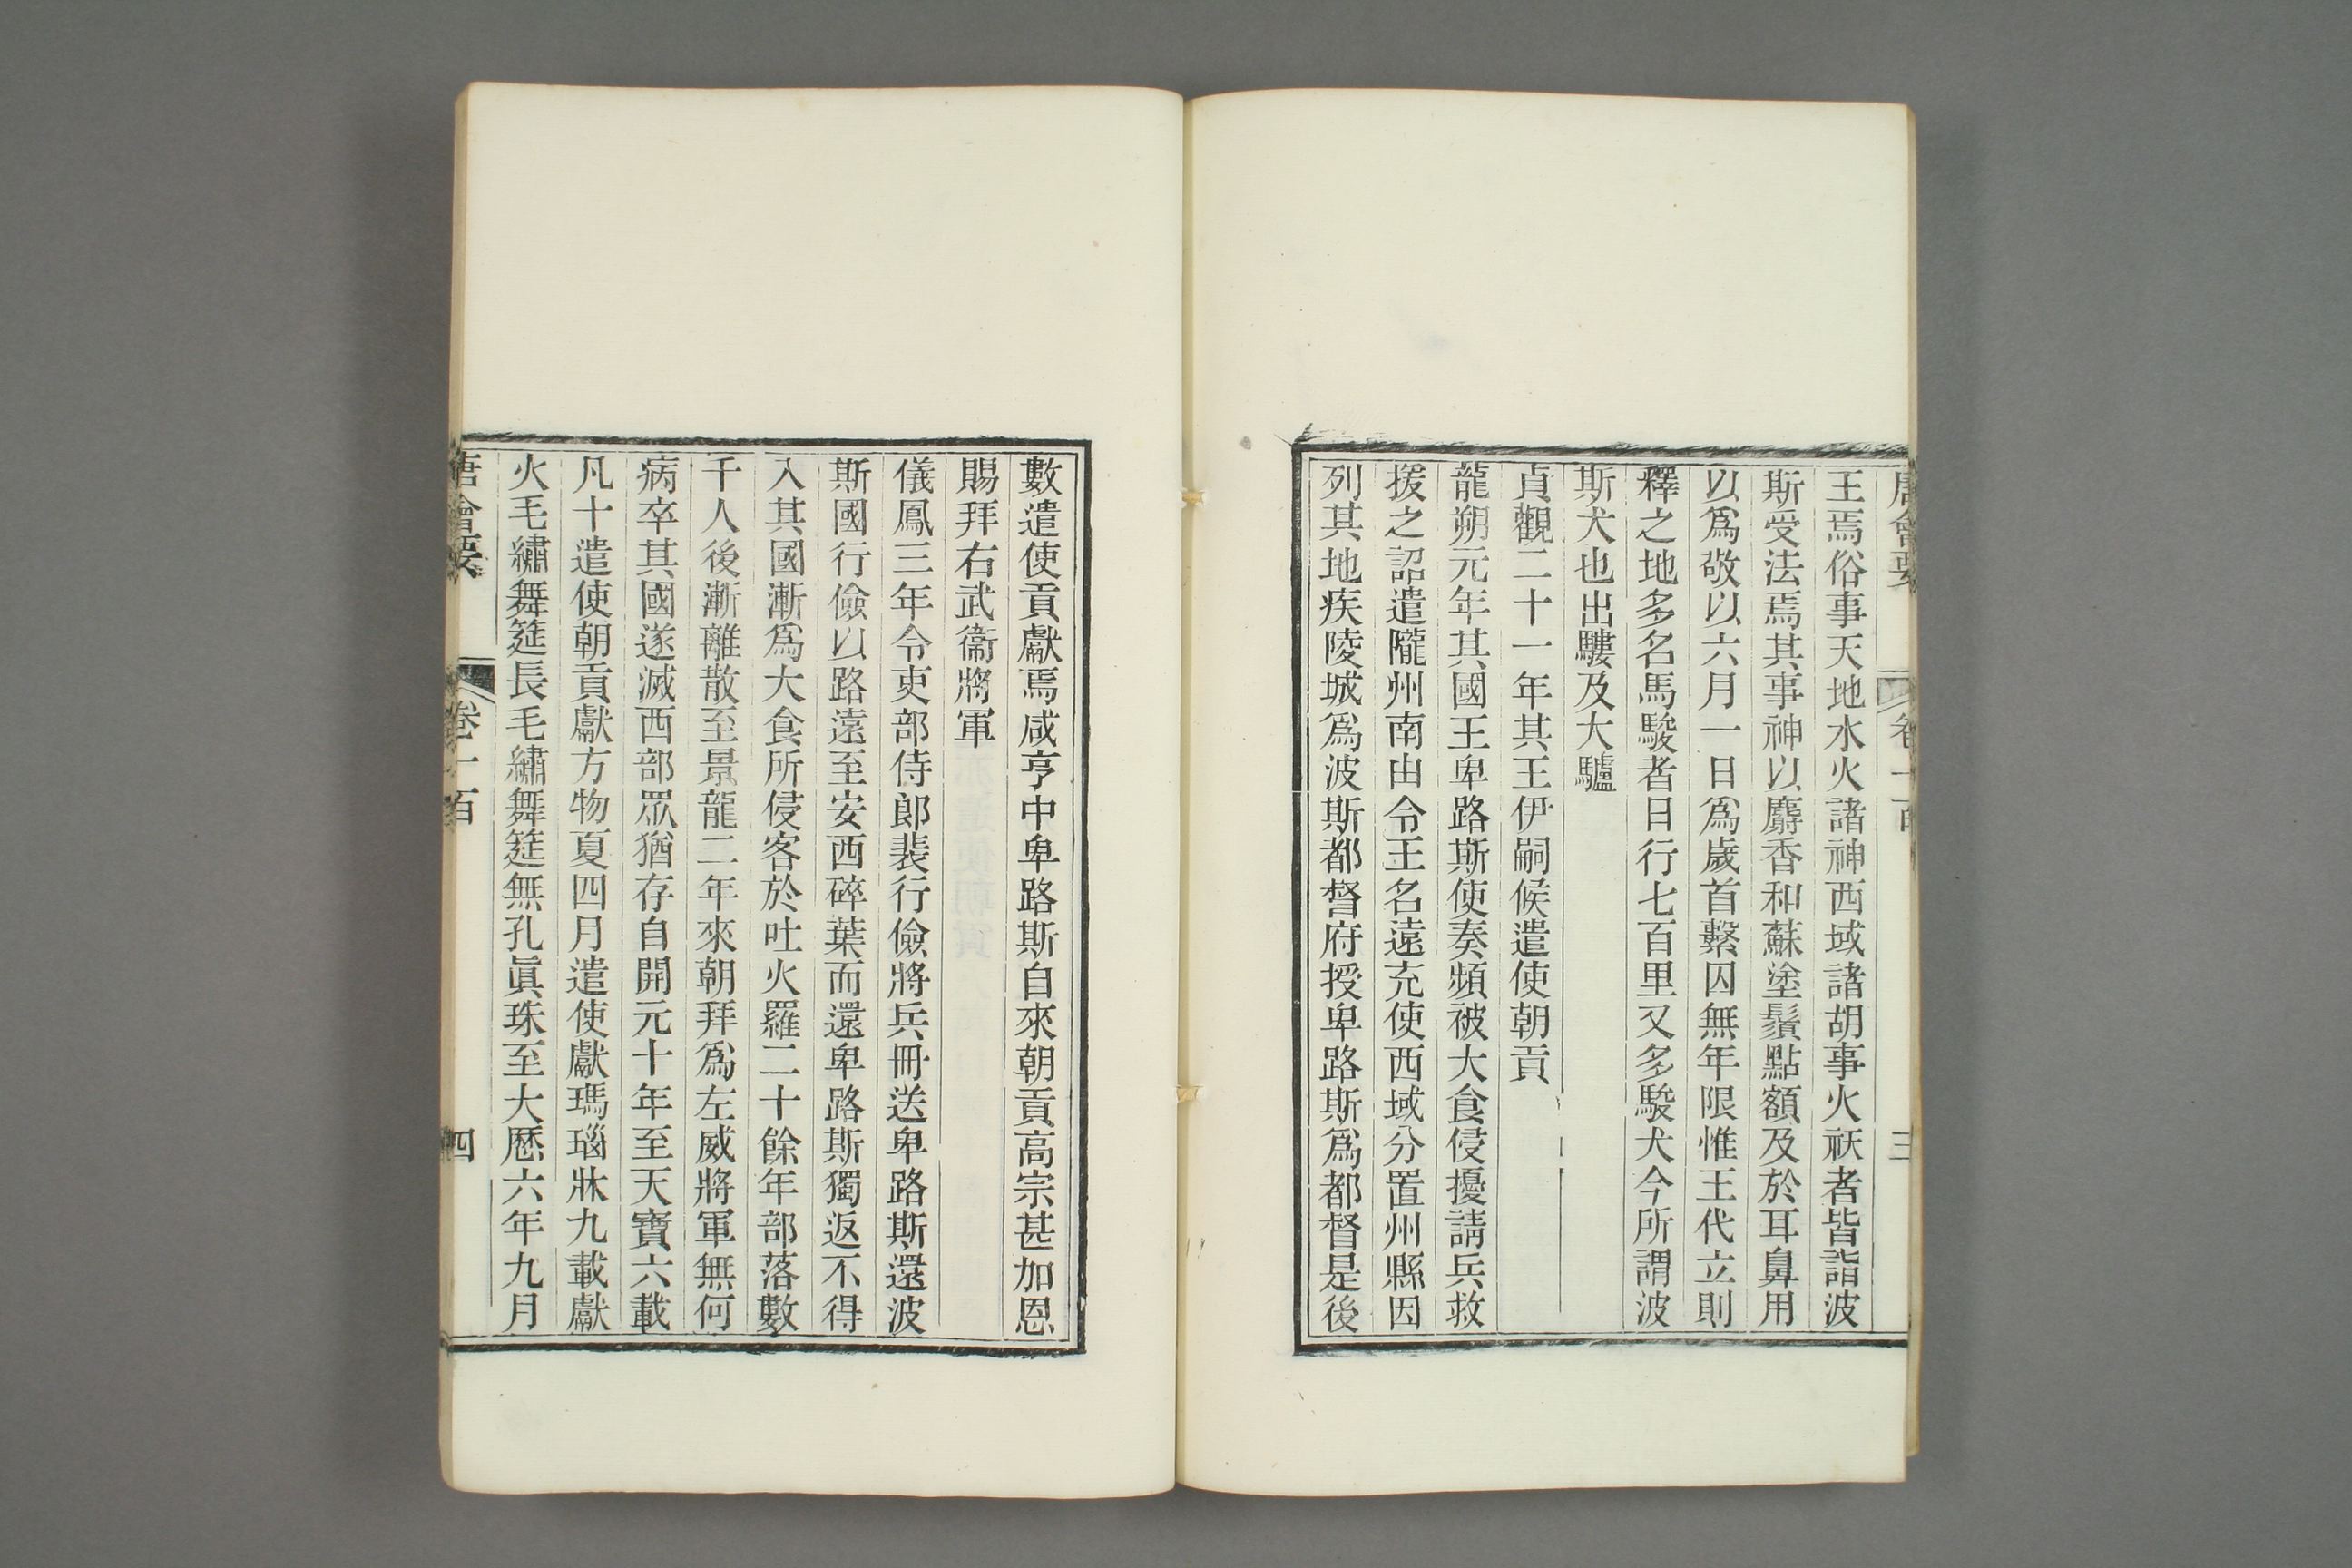 唐會要 卷一百 三
王焉俗事天地水火諸神西域諸胡事火祅者皆詣波
斯受法焉其事神以麝香和蘇塗鬚點額及於耳鼻用
以爲敬以六月一日爲歲首繫囚無年限惟王代立則
釋之地多名馬駿者日行七百里又多駿犬今所謂波
斯犬也出騾及大驢
貞觀二十一年其王伊嗣候遣使朝貢
龍朔元年其國王卑路斯使奏頻被大食侵擾請兵救
援之詔遣隴州南由令王名遠充使西域分置州縣因
列其地疾陵城爲波斯都督府授卑路斯爲都督是後
數遣使貢獻焉咸亨中卑路斯自來朝貢高宗甚加恩
賜拜右武衞將軍
儀鳳三年令吏部侍郎裴行儉將兵冊送卑路斯還波
斯國行儉以路遠至安西碎葉而還卑路斯獨返不得
入其國漸爲大食所侵客於吐火羅二十餘年部落數
千人後漸離散至景龍二年來朝拜爲左威將軍無何
病卒其國遂滅西部眾猶存自開元十年至天寶六載
凡十遣使朝貢獻方物夏四月遣使獻瑪瑙牀九載獻
火毛繡舞筵長毛繡舞筵無孔眞珠至大厯六年九月
唐會要 卷一百 四